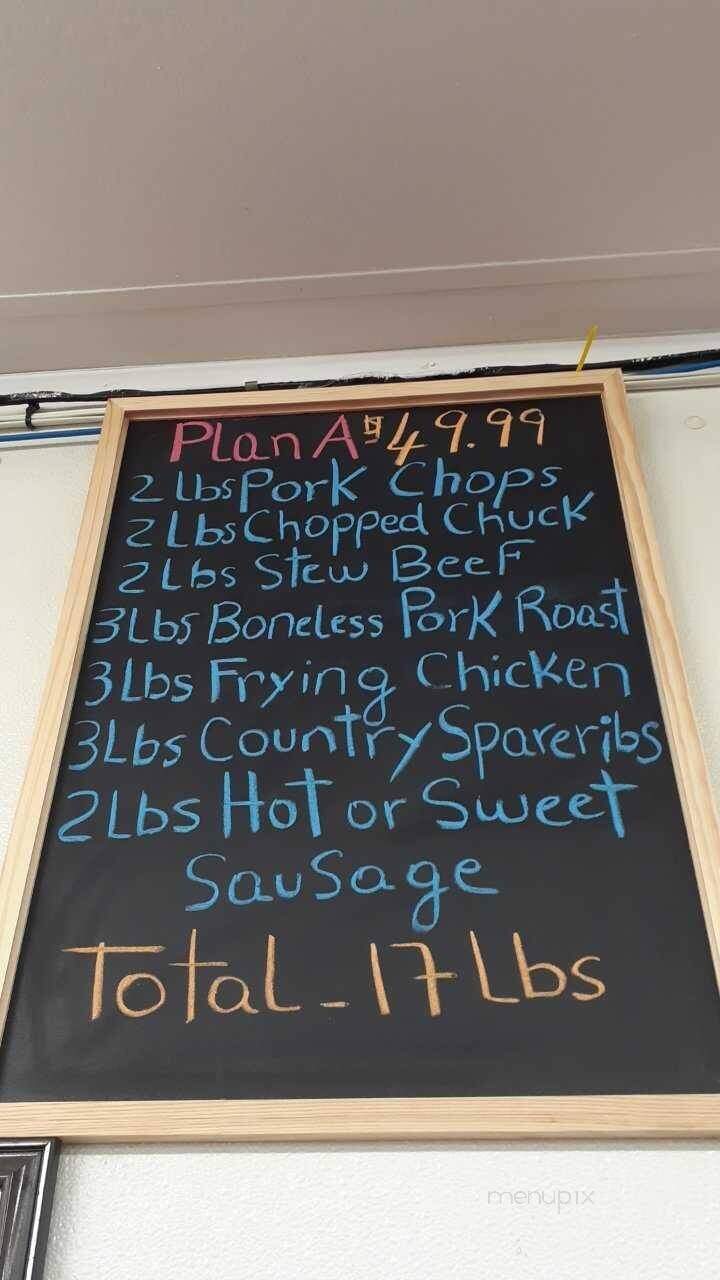 Plan A $49.99
2 Lbs Pork Chops
2 Lbs Chopped Chuck
2 Lbs Stew Beef
3 Lbs Boneless Pork Roast
3 Lbs Frying Chicken
3 Lbs Country Spareribs
2 Lbs Hot or Sweet
Sausage
Total - 17 Lbs
menupix